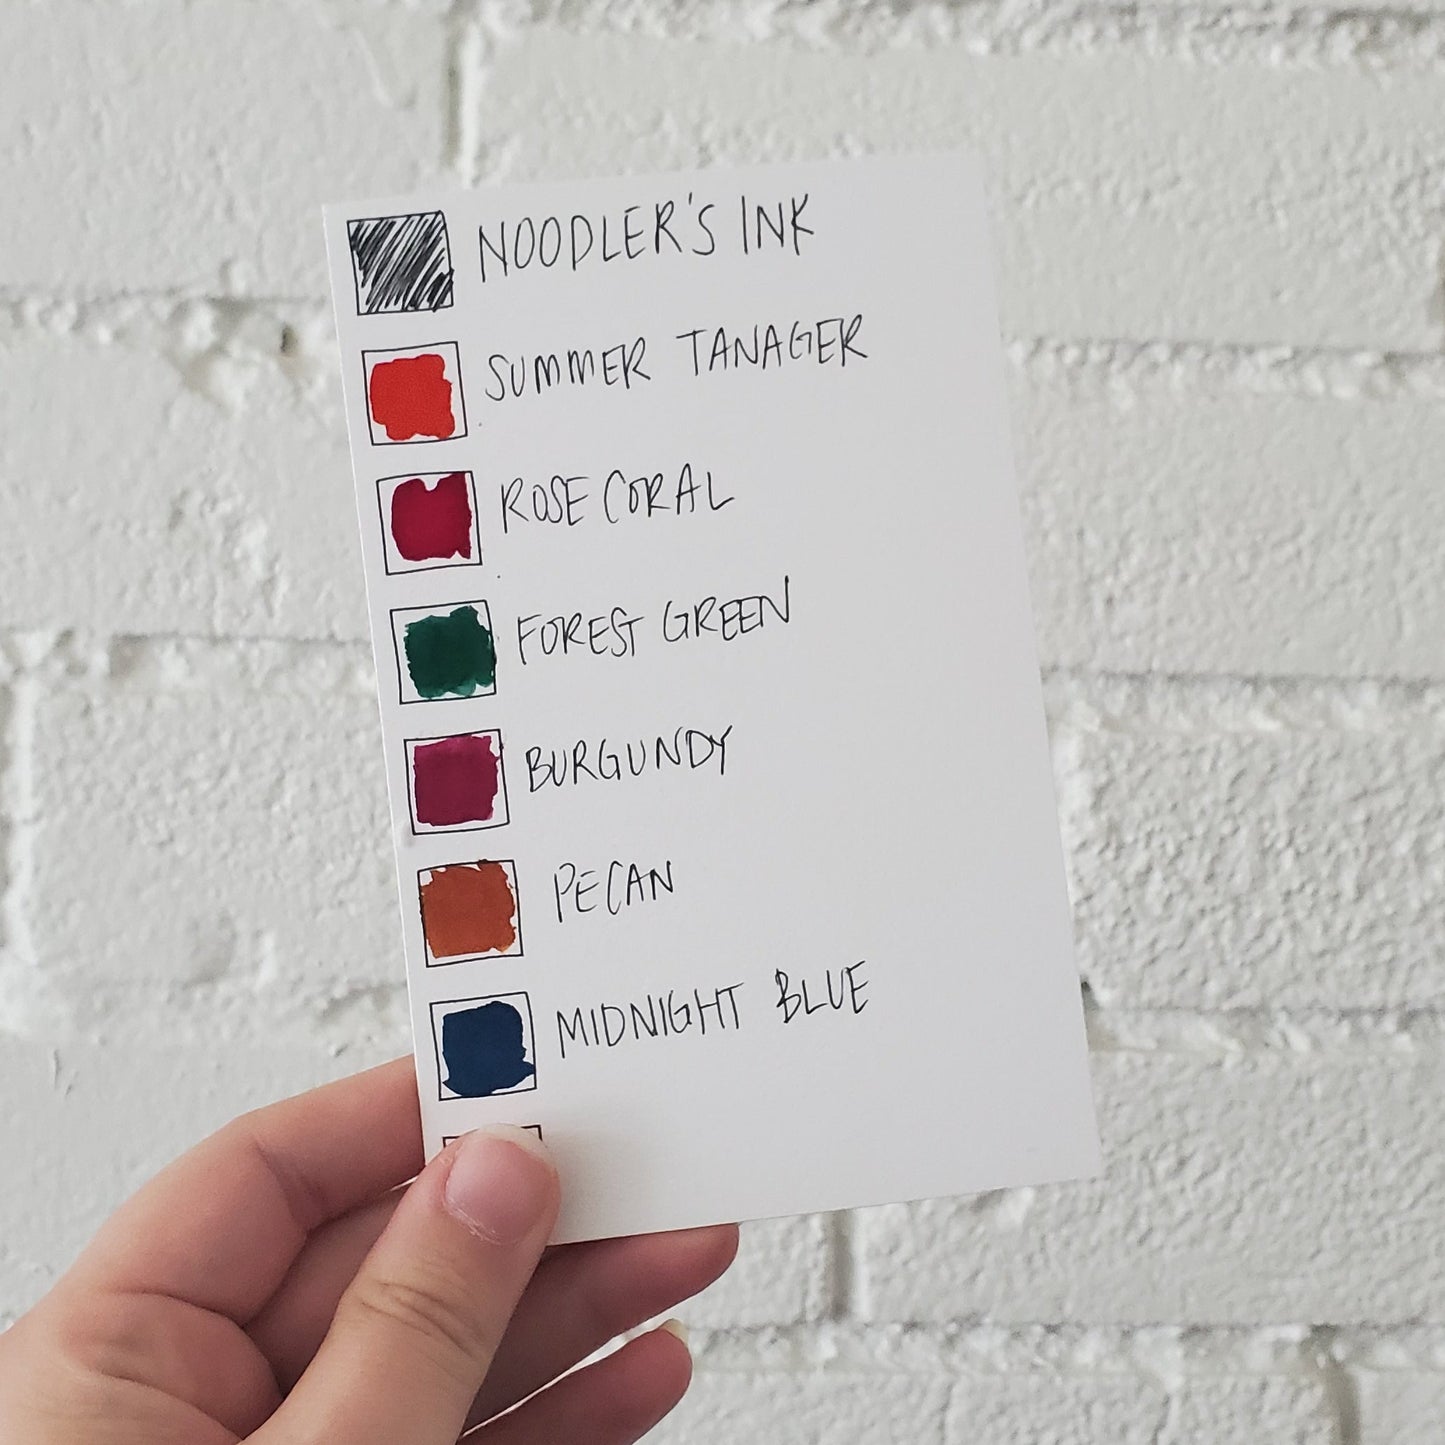 NOODLER'S INK
SUMMER TANAGER
ROSE CORAL
FOREST GREEN
BURGUNDY
PECAN
MIDNIGHT BLUE